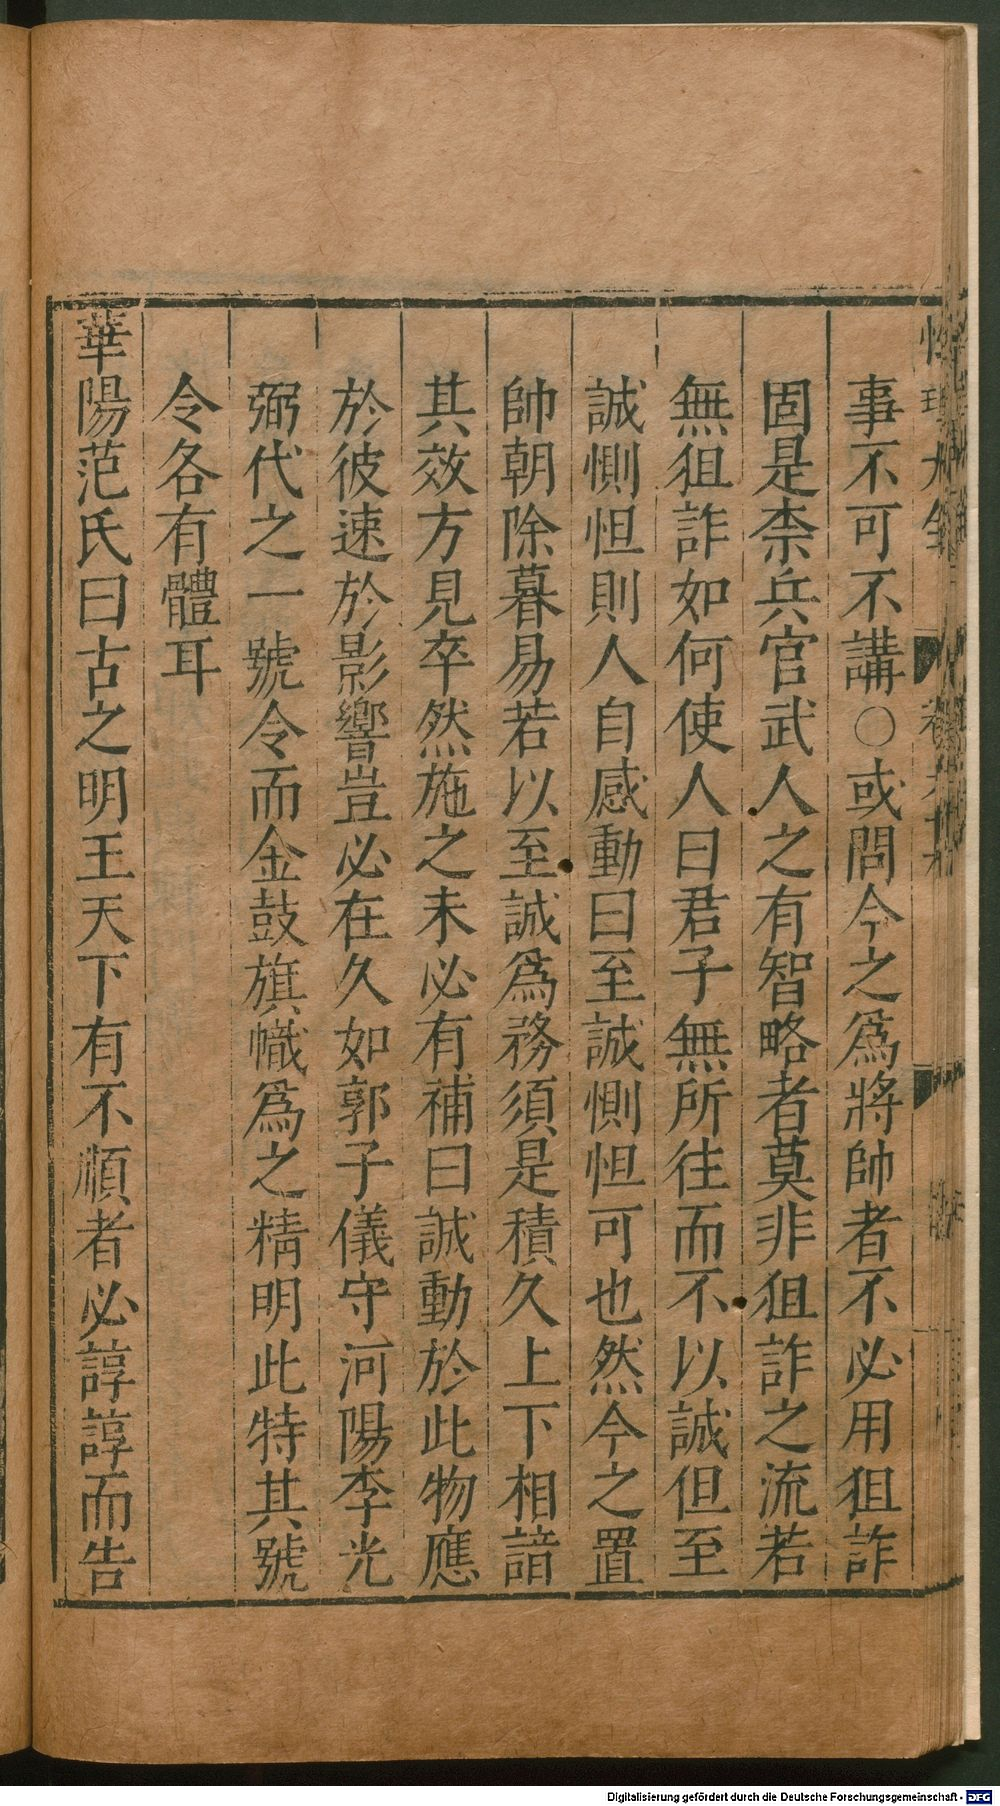 事不可不講○或問今之爲將帥者不必用狙詐
固是柰兵官武人之有智略者莫非狙詐之流若
無狙詐如何使人曰君子無所往而不以誠但至
誠惻怛則人自感動曰至誠惻怛可也然今之置
帥朝除暮易若以至誠爲務須是積久上下相諳
其效方見卒然施之未必有補曰誠動於此物應
於彼速於影響豈必在久如郭子儀守河陽李光
弼代之一號令而金鼓旗幟爲之精明此特其號
令各有體耳
華陽范氏曰古之明王天下有不順者必諄諄而告
Digitalisierung gefördert durch die Deutsche Forschungsgemeinschaft - DFG